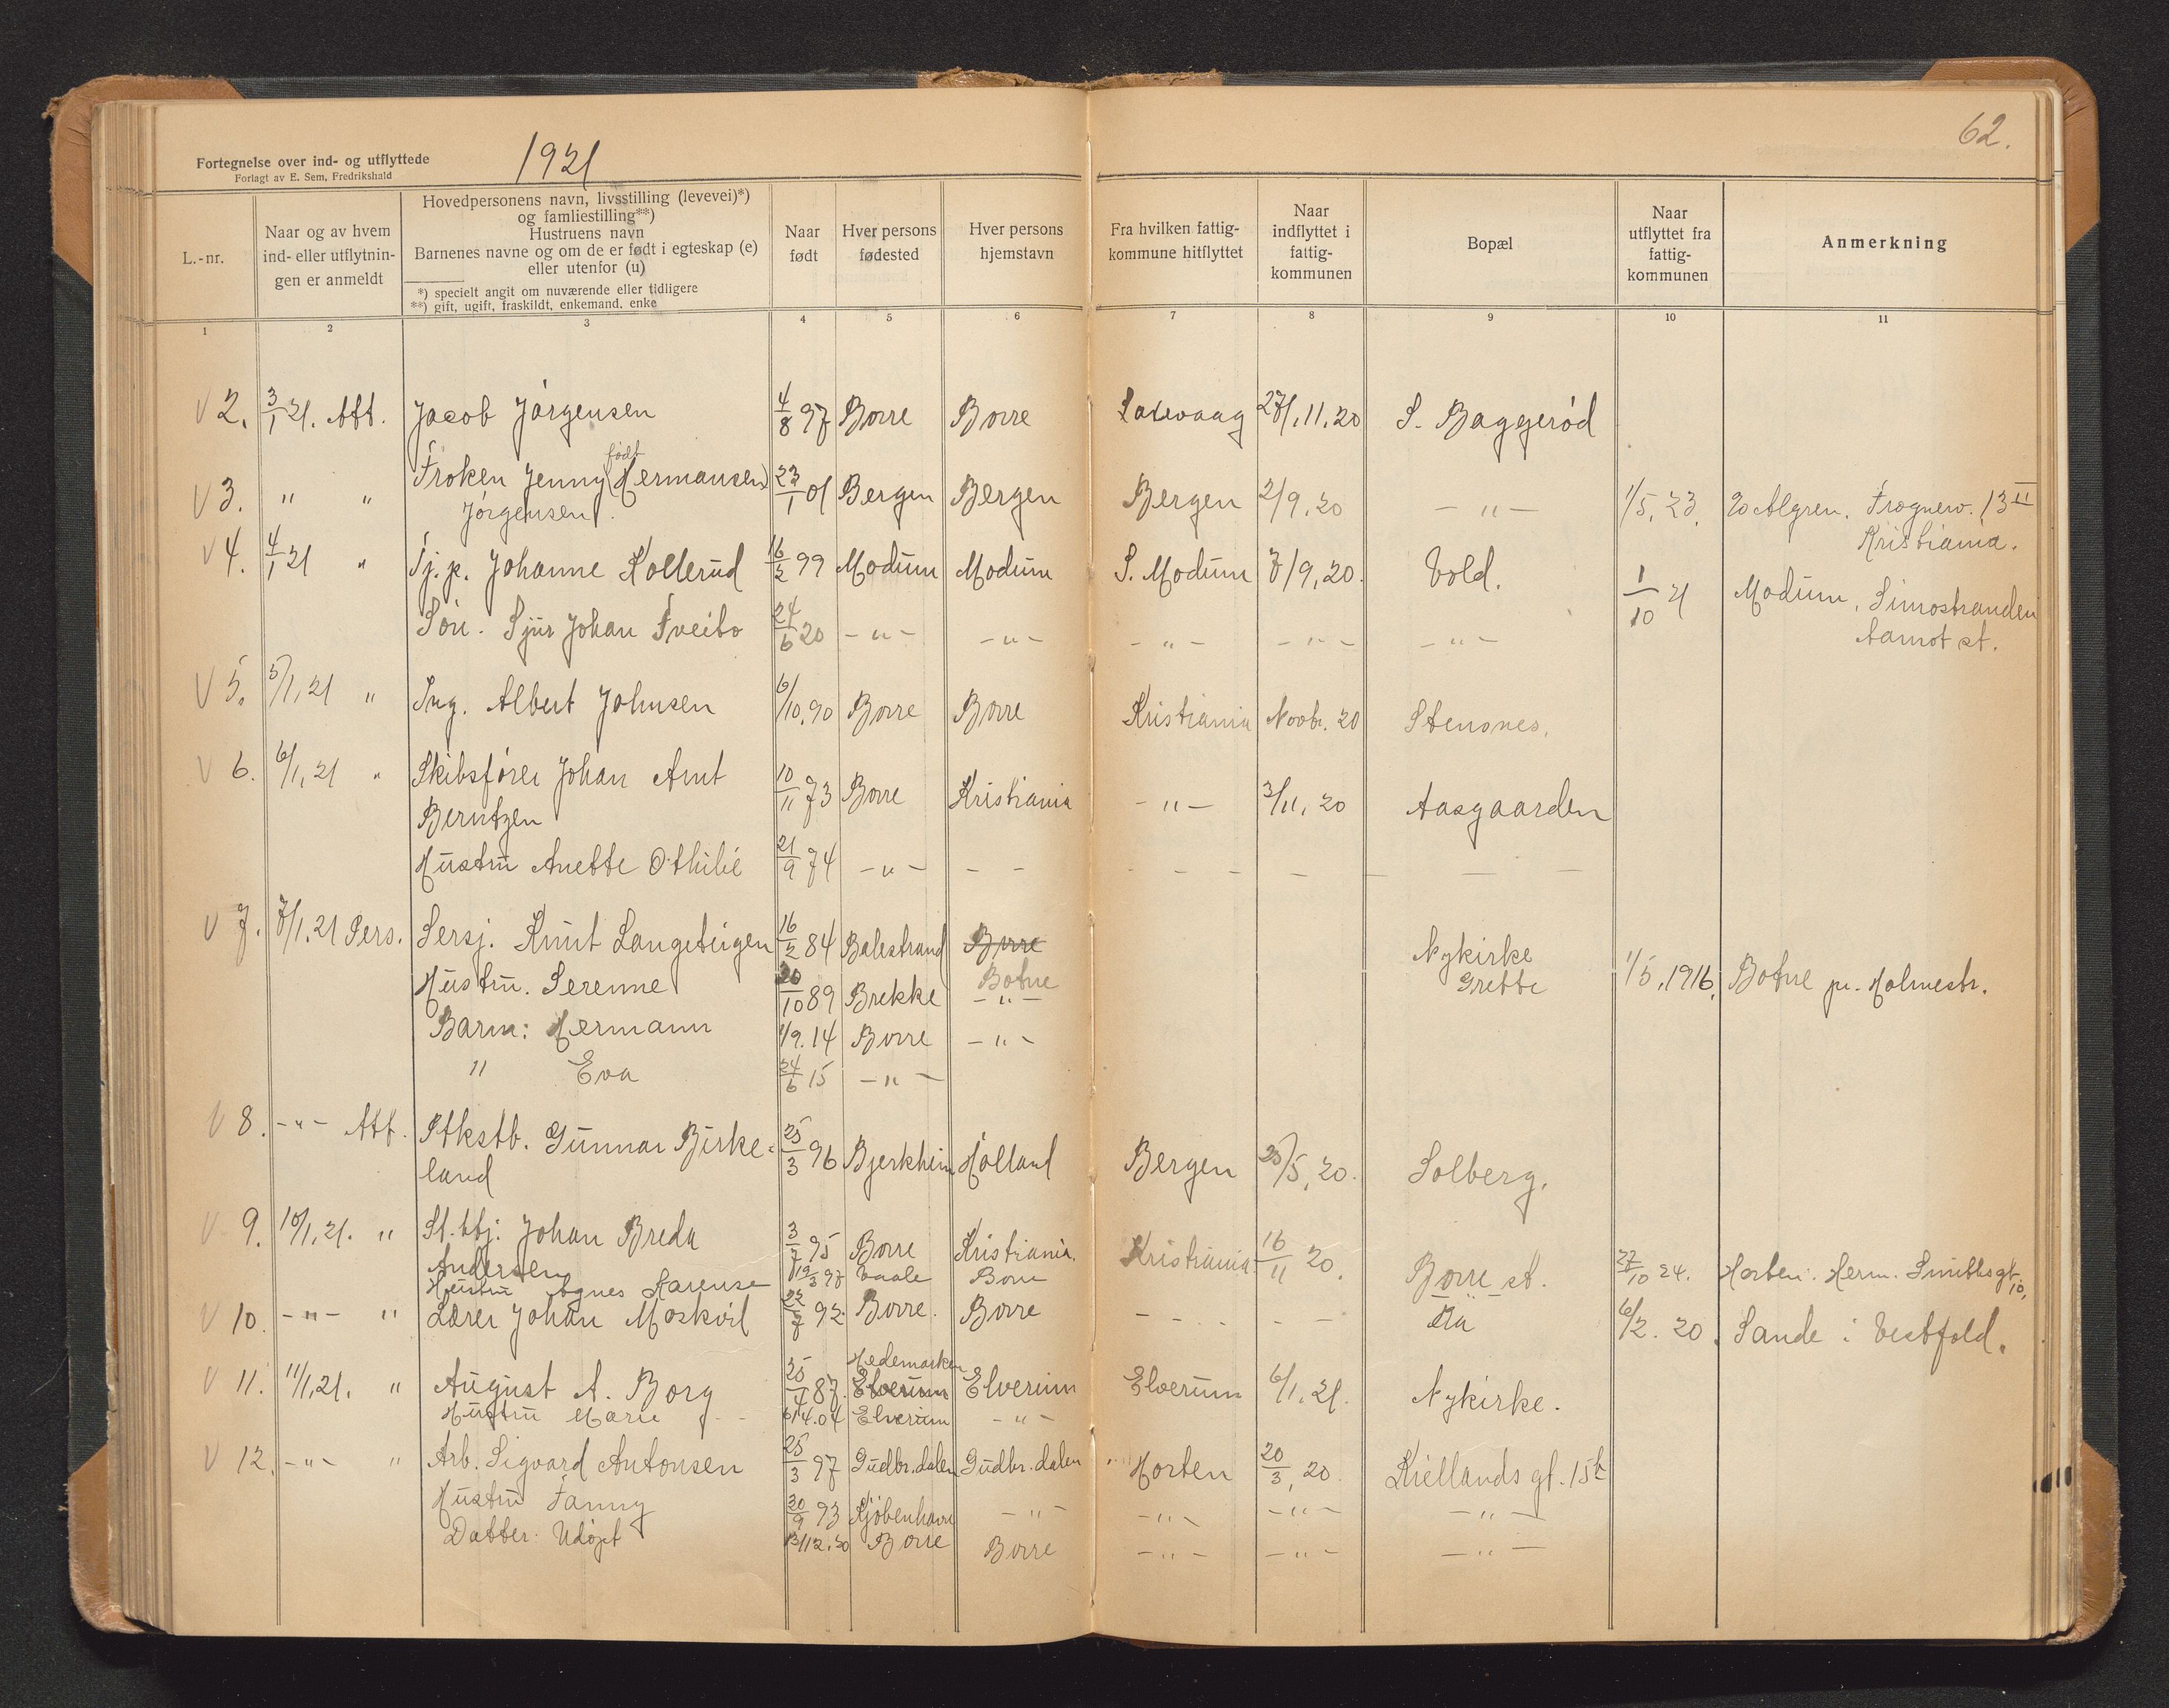 62.
Fortegnelse over ind- og utflyttede
Forlagt av E. Sem, Fredrikshald
1921
L.-nr.
Naar og av hvem ind- eller utflytningen er anmeldt
Hovedpersonens navn, livsstilling (levevei)*)
og famliestilling**)
Hustruens navn
Barnenes navne og om de er født i egteskap (e)
eller utenfor (u)
*) specielt angit om nuværende eller tidligere
**) gift, ugift, fraskildt, enkemand, enke
Naar født
Hver persons fødested
Hver persons hjemstavn
Fra hvilken fattigkommune hitflyttet
Naar indflyttet i fattigkommunen
Bopæl
Naar utflyttet fra fattigkommunen
Anmerkning
1 2 3 4 5 6 7 8 9 10 11
V 2. 3/1 21. Att. Jacob Jørgensen 4/8 97 Borre Borre Laxevaag 27/.11.20 S. Baggerød
V 3. " " Frøken Jenny (født Hermansen) 23/1 01 Bergen Bergen Bergen 2/9.20 - " - 1/5.23. Frognerv. 13 II
Jørgensen. Kristiania.
V 4. 4/1 21 " Tj.p. Johanne Kollerud 16/2 99 Modum Modum S. Modum 7/9.20. Vold. 1/10 21 Modum, Simostranden
Søn. Sjur Johan Tveito 24/6 20 - " - - " - - " - - " - - " - Aamot st.
V 5. 5/1.21 " Ing. Albert Johnsen 6/10.90 Borre Borre Kristiania Novbr. 20 Stensnes.
V 6. 6/1.21 " Skibsfører Johan Arnt 10/11 73 Borre Kristiania - " - 3/11.20 Aasgaarden
Berntzen
Hustru Anette Othilie 21/9 74 - " - - - - - - - - - -
V 7. 7/1.21 Pers. Sersj. Knut Langeteigen 16/2 84 Balestrand Borre Nykirke
Hustru. Serenne 20/10 89 Brekke Botne - " - Grette 1/5.1916. Botne pr. Holmestr.
Barn: Hermann 1/9.14 Borre - " -
" Eva 24/6 15 - " -
V 8. - " - Att. Stkstb. Gunnar Birke= 25/3 96 Bjerkheim Holland Bergen 25/5.20. Solberg.
land
V 9. 10/1.21. " St.btj. Johan Breda 3/7 95 Borre Kristiania. Kristiania 16/11 20. Borre st. 27/10 24. Horten. Herm. Smithsgt. 10.
Andersen
Hustru Agnes 19/3 97 Vaale Borre
V 10. - " - " Lærer Johan Moskvil 22/7 92 Borre. Borre - - - - - 6/2. 20. Sande i Vestfold.
V 11. 11/1.21. " August A. Borg 25/4 87. Hedemarken Elverum Elverum Elverum 6/1.21. Nykirke.
Hustru Marie 6/4.04 Elverum - " -
V 12. - " - " Arb. Sigvard Antonsen 25/3 97 Gudbr.dalen Gudbr.dalen Horten 20/3.20. Kiellands gt. 15b
Hustru Fanny 20/9 93 Kjøbenhavn - " - - " - - " - - " -
Datter. Udøpt 13/12.20 Borre Borre - " - - " - - " -